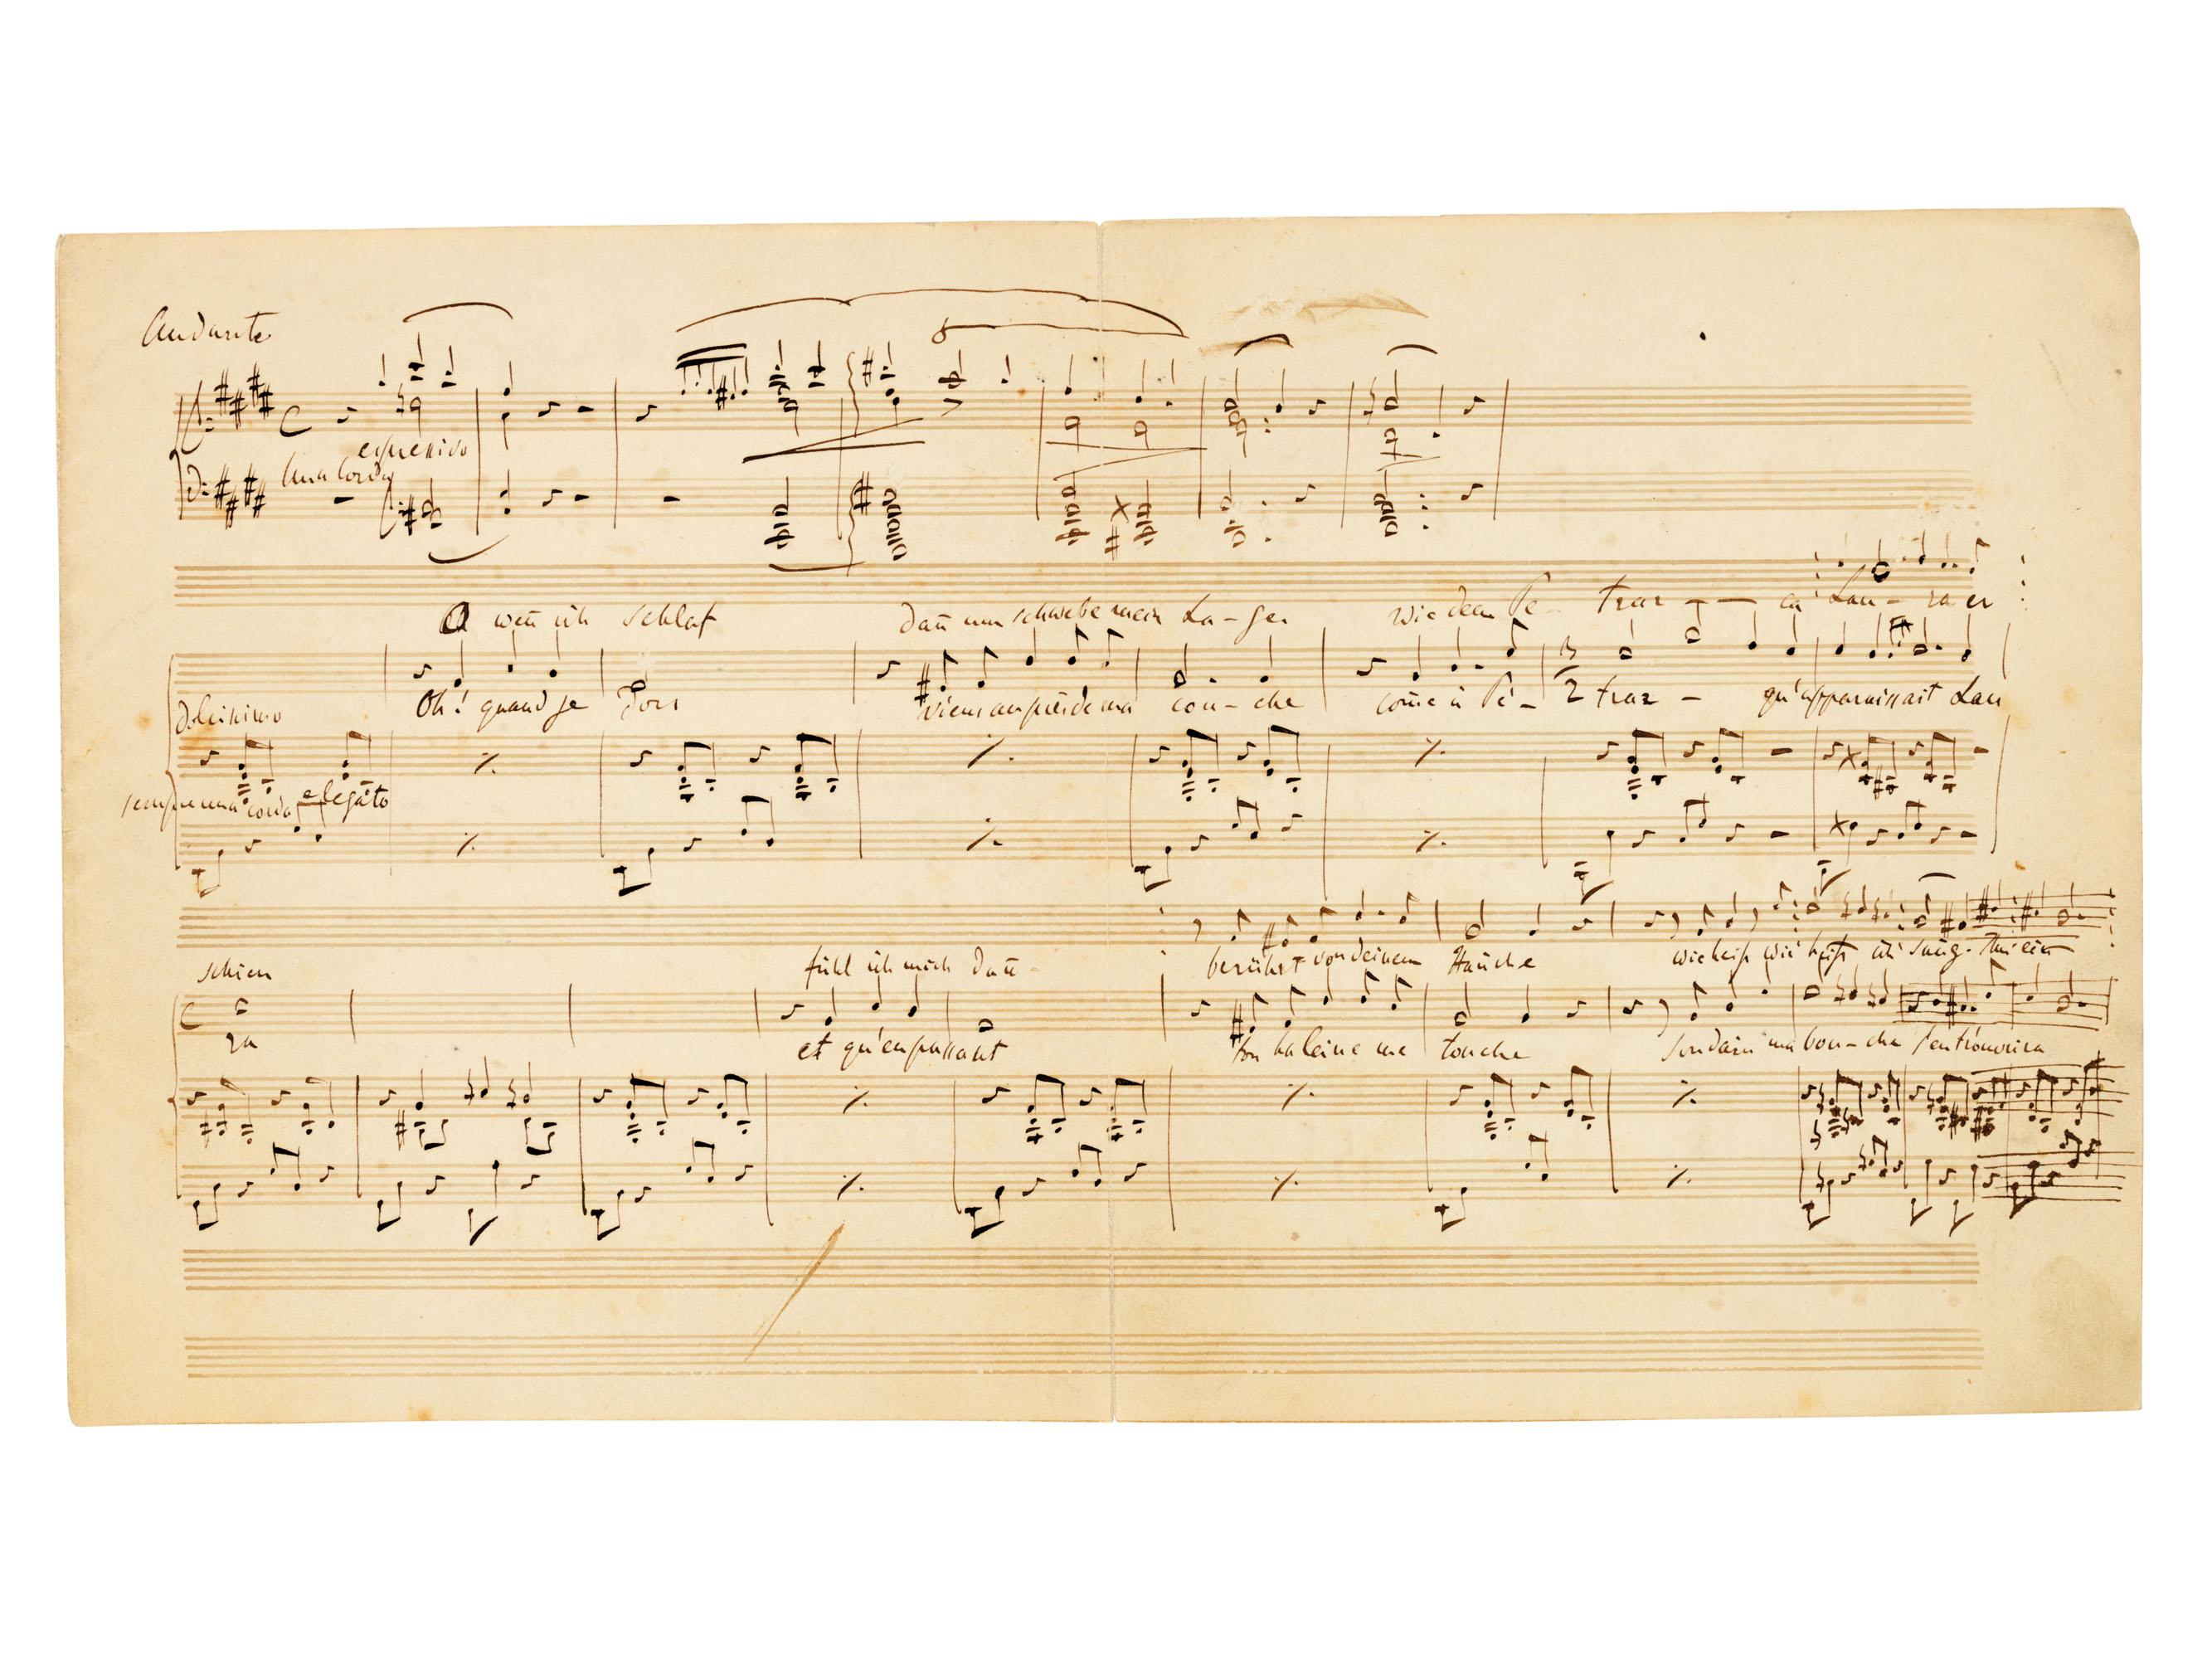 Andante
espressivo
una corda
O weñ ich schlaf dañ um schwebe mein La-ger wie dem Pe- trar - - ca Lau - ra er
dolcissimo Oh! quand je dors viens auprès de ma cou-che come à Pé- trar - qu'apparaissait Lau
sempre una corda e legato
schien fühl ich mich dañ berührt von deinem Hauche wie heiß wie heiß
ra et qu'en passant ton haleine me touche soudain ma bou-che s'entrouvrira